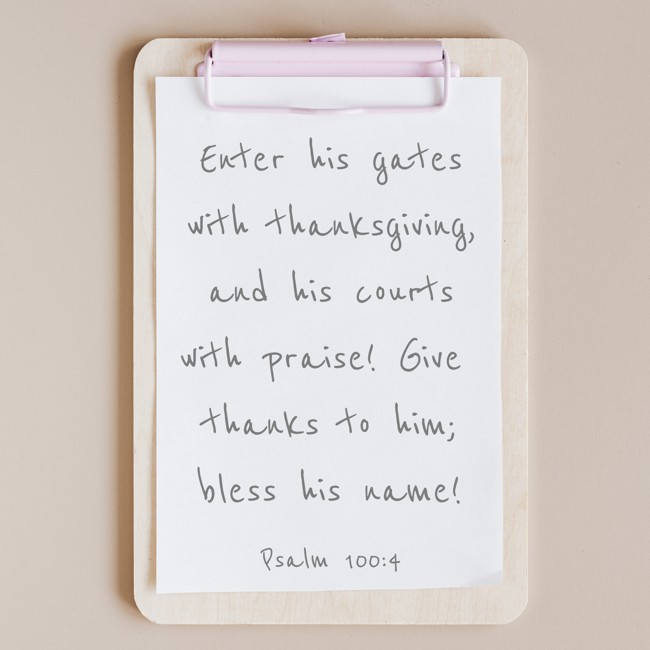 Enter his gates
with thanksgiving,
and his courts
with praise! Give
thanks to him;
bless his name!
Psalm 100:4